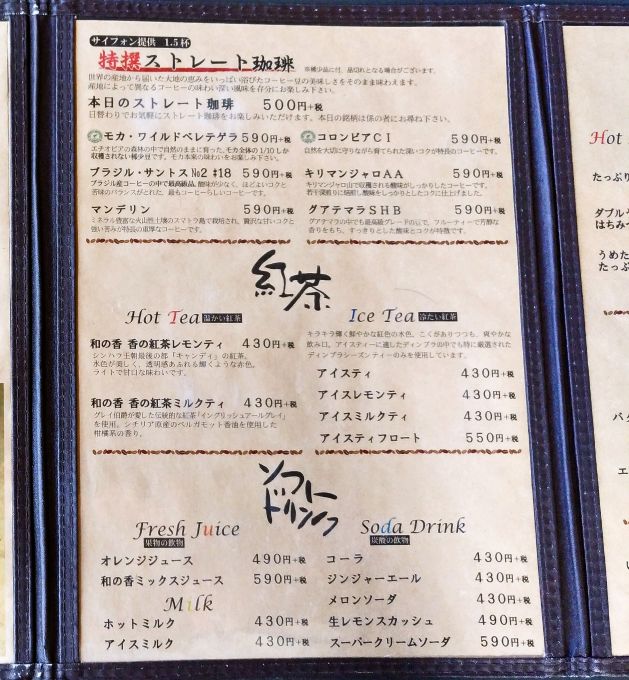 サイフォン提供 1.5杯
特撰ストレート珈琲 ※稀少品に付、品切れとなる場合がございます。
世界の産地から届いた大地の恵みをいっぱい浴びたコーヒー豆の美味しさをそのまま味わえます。
産地によって異なるコーヒーの味わい深い風味を存分にお楽しみ下さい。
本日のストレート珈琲 500円+税
日替わりでお気軽にストレート珈琲をお楽しみいただけます。本日の銘柄は係の者にお尋ね下さい。
モカ・ワイルドベレテゲラ 590円+税
エチオピアの森林の中で自然のままに育った、モカ全体の1/10しか
収穫されない稀少豆です。モカ本来の味わいをお楽しみ下さい。
コロンビアCI 590円+税
自然を大切に守りながら育てられた深いコクが特長のコーヒーです。
ブラジル・サントス №2 #18 590円+税
ブラジル産コーヒーの中で最高級品。酸味が少なく、ほどよいコクと
苦味のバランスがとれた、最もコーヒーらしいコーヒーです。
キリマンジャロAA 590円+税
キリマンジャロ山で収穫される酸味がしっかりしたコーヒーです。
若干深煎りに焙煎し酸味をしっかりとしたコクに仕上げました。
マンデリン 590円+税
ミネラル豊富な火山性土壌のスマトラ島で栽培され、贅沢な甘いコクと
強い苦みが特長の重厚なコーヒーです。
グアテマラSHB 590円+税
グアテマラの中でも最高級グレードの豆で、フルーティーで芳醇な
香りをもち、すっきりとした酸味とコクが特徴です。
紅茶
Hot Tea 温かい紅茶
和の香 香の紅茶レモンティ 430円+税
シンハラ王朝最後の都「キャンディ」の紅茶。
水色が美しく、透明感あふれる輝くような赤色。
ライトで甘口な味わいです。
和の香 香の紅茶ミルクティ 430円+税
グレイ伯爵が愛した伝統的な紅茶「イングリッシュアールグレイ」
を使用。シチリア原産のベルガモット香油を使用した
柑橘系の香り。
Ice Tea 冷たい紅茶
キラキラ輝く鮮やかな紅色の水色。こくがありつつも、爽やかな
飲み口。アイスティーに適したディンブラの中でも特に厳選された
ディンブラシーズンティーのみを使用しています。
アイスティ 430円+税
アイスレモンティ 430円+税
アイスミルクティ 430円+税
アイスティフロート 550円+税
ソフトドリンク
Fresh Juice
果物の飲物
オレンジジュース 490円+税
和の香ミックスジュース 590円+税
Milk
ホットミルク 430円+税
アイスミルク 430円+税
Soda Drink
炭酸の飲物
コーラ 430円+税
ジンジャーエール 430円+税
メロンソーダ 430円+税
生レモンスカッシュ 490円+税
スーパークリームソーダ 590円+税
Hot
たっぷり
ダブル
はちみつ
うめた
たっぷ
バタ
エ